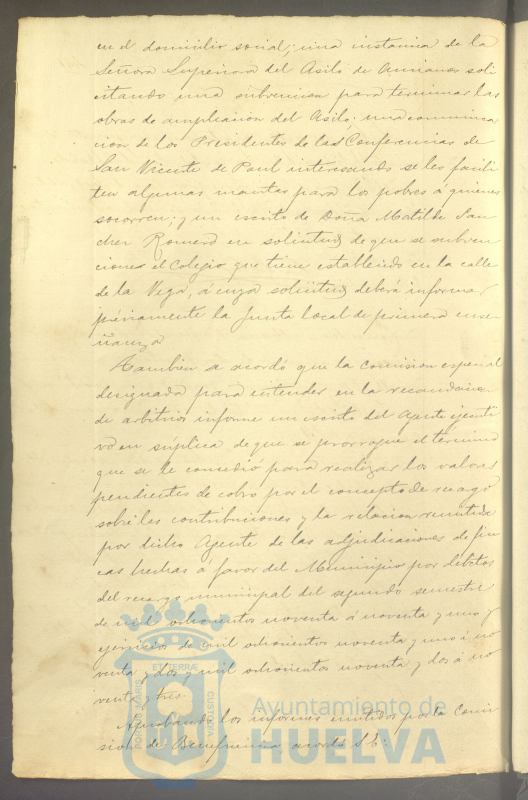 en el domicilio social; una instancia de la
Señora Superiora del Asilo de Ancianos soli
citando una subvencion para terminar las
obras de ampliacion del Asilo; una comunica
cion de los Presidentes de las Conferencias de
San Vicente de Paul interesando se les facili
ten algunas mantas para los pobres á quienes
socorren; y un escrito de Doña Matilde San
chez Romero en solicitud de que se subven
cione el Colegio que tiene establecido en la calle
de la Vega, á cuya solicitud deberá informar
préviamente la Junta local de primera ense
ñanza
Tambien se acordó que la comision especial
designada para entender en la recaudacion
de arbitrios informe un escrito del Agente ejecuti
vo en súplica de que se prorrogue el término
que se le concedió para realizar los valores
pendientes de cobro por el concepto de recargo
sobre las contribuciones y la relacion remitida
por dicho Agente de las adjudicaciones de fin
cas hechas á favor del Municipio por débitos
del recargo municipal del segundo semestre
de mil ochocientos noventa á noventa y uno y
ejercicios de mil ochocientos noventa y uno á no
venta y dos y mil ochocientos noventa y dos á no
venta y tres.
Aprobando los informes emitidos por la Comi
sion de Beneficencia acordó S. E:
PORTUS MARIS
ET TERRÆ
CUSTODIA
Ayuntamiento de
HUELVA